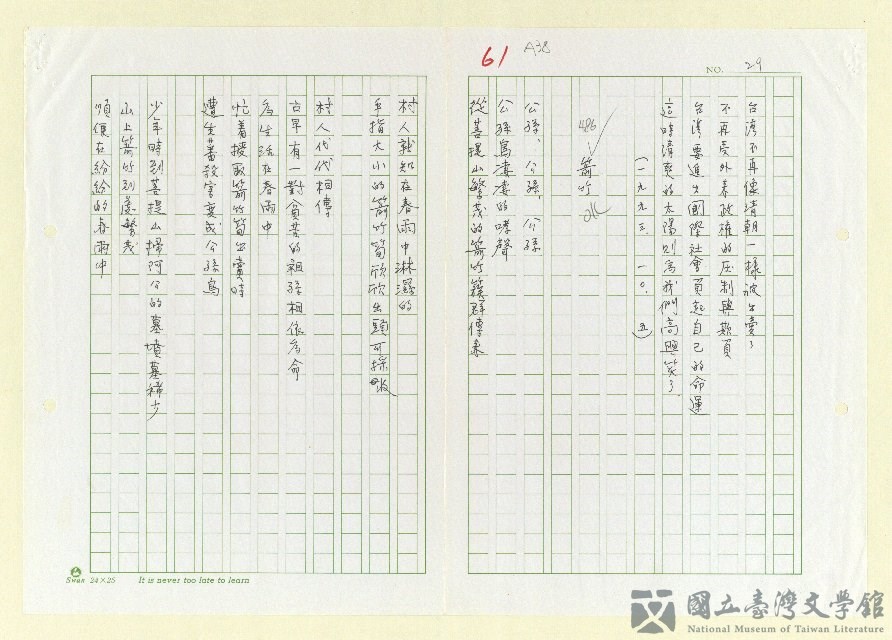 61
A38
NO. 29
台湾不再像清朝一樣被出賣了
不再受外來政權的压制與欺負
台湾要進出國際社會負起自己的命運
這時清爽的太陽則為我們高興笑了
(一九九三.一一○.五)
486
箭竹
OK
公孫,公孫,公孫
公孫鳥淒淒的哮聲
從菩提山繁茂的箭竹簇群傳來
村人就知在春雨中淋濕的
手指大小的箭竹筍欣欣出頭可採
村人代代相傳
古早有一對貧苦的祖孫相依為命
為生活在春雨中
忙着拔取箭竹筍出賣時
遭生蕃殺害变成公孫鳥
少年時到菩提山掃阿公的墓墳墓稀少
山上箭竹到處繁茂
順便在紛紛的春雨中
Swan 24×25 It is never too late to learn
國立臺灣文學館
National Museum of Taiwan Literature